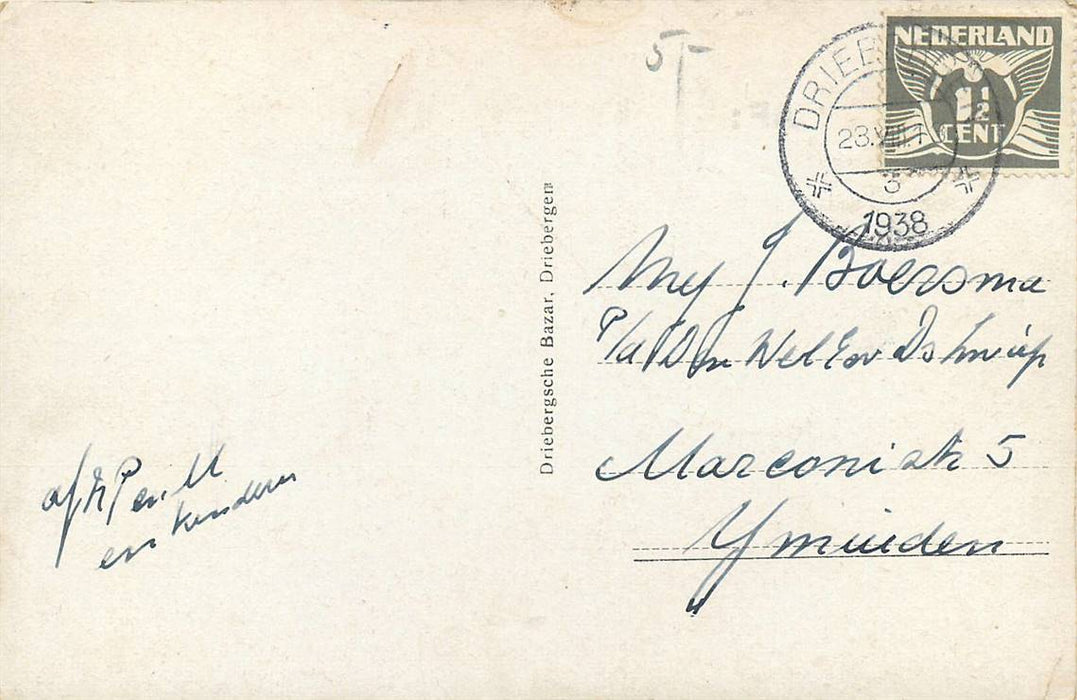 5,-
NEDERLAND
1½
CENT
DRIEB
23.VIII.
3
1938
Driebergsche Bazar, Driebergen
Mej J. Boersma
P/a Den WelEw Ds
Marconistr 5
Ymuiden
af,
en kinderen